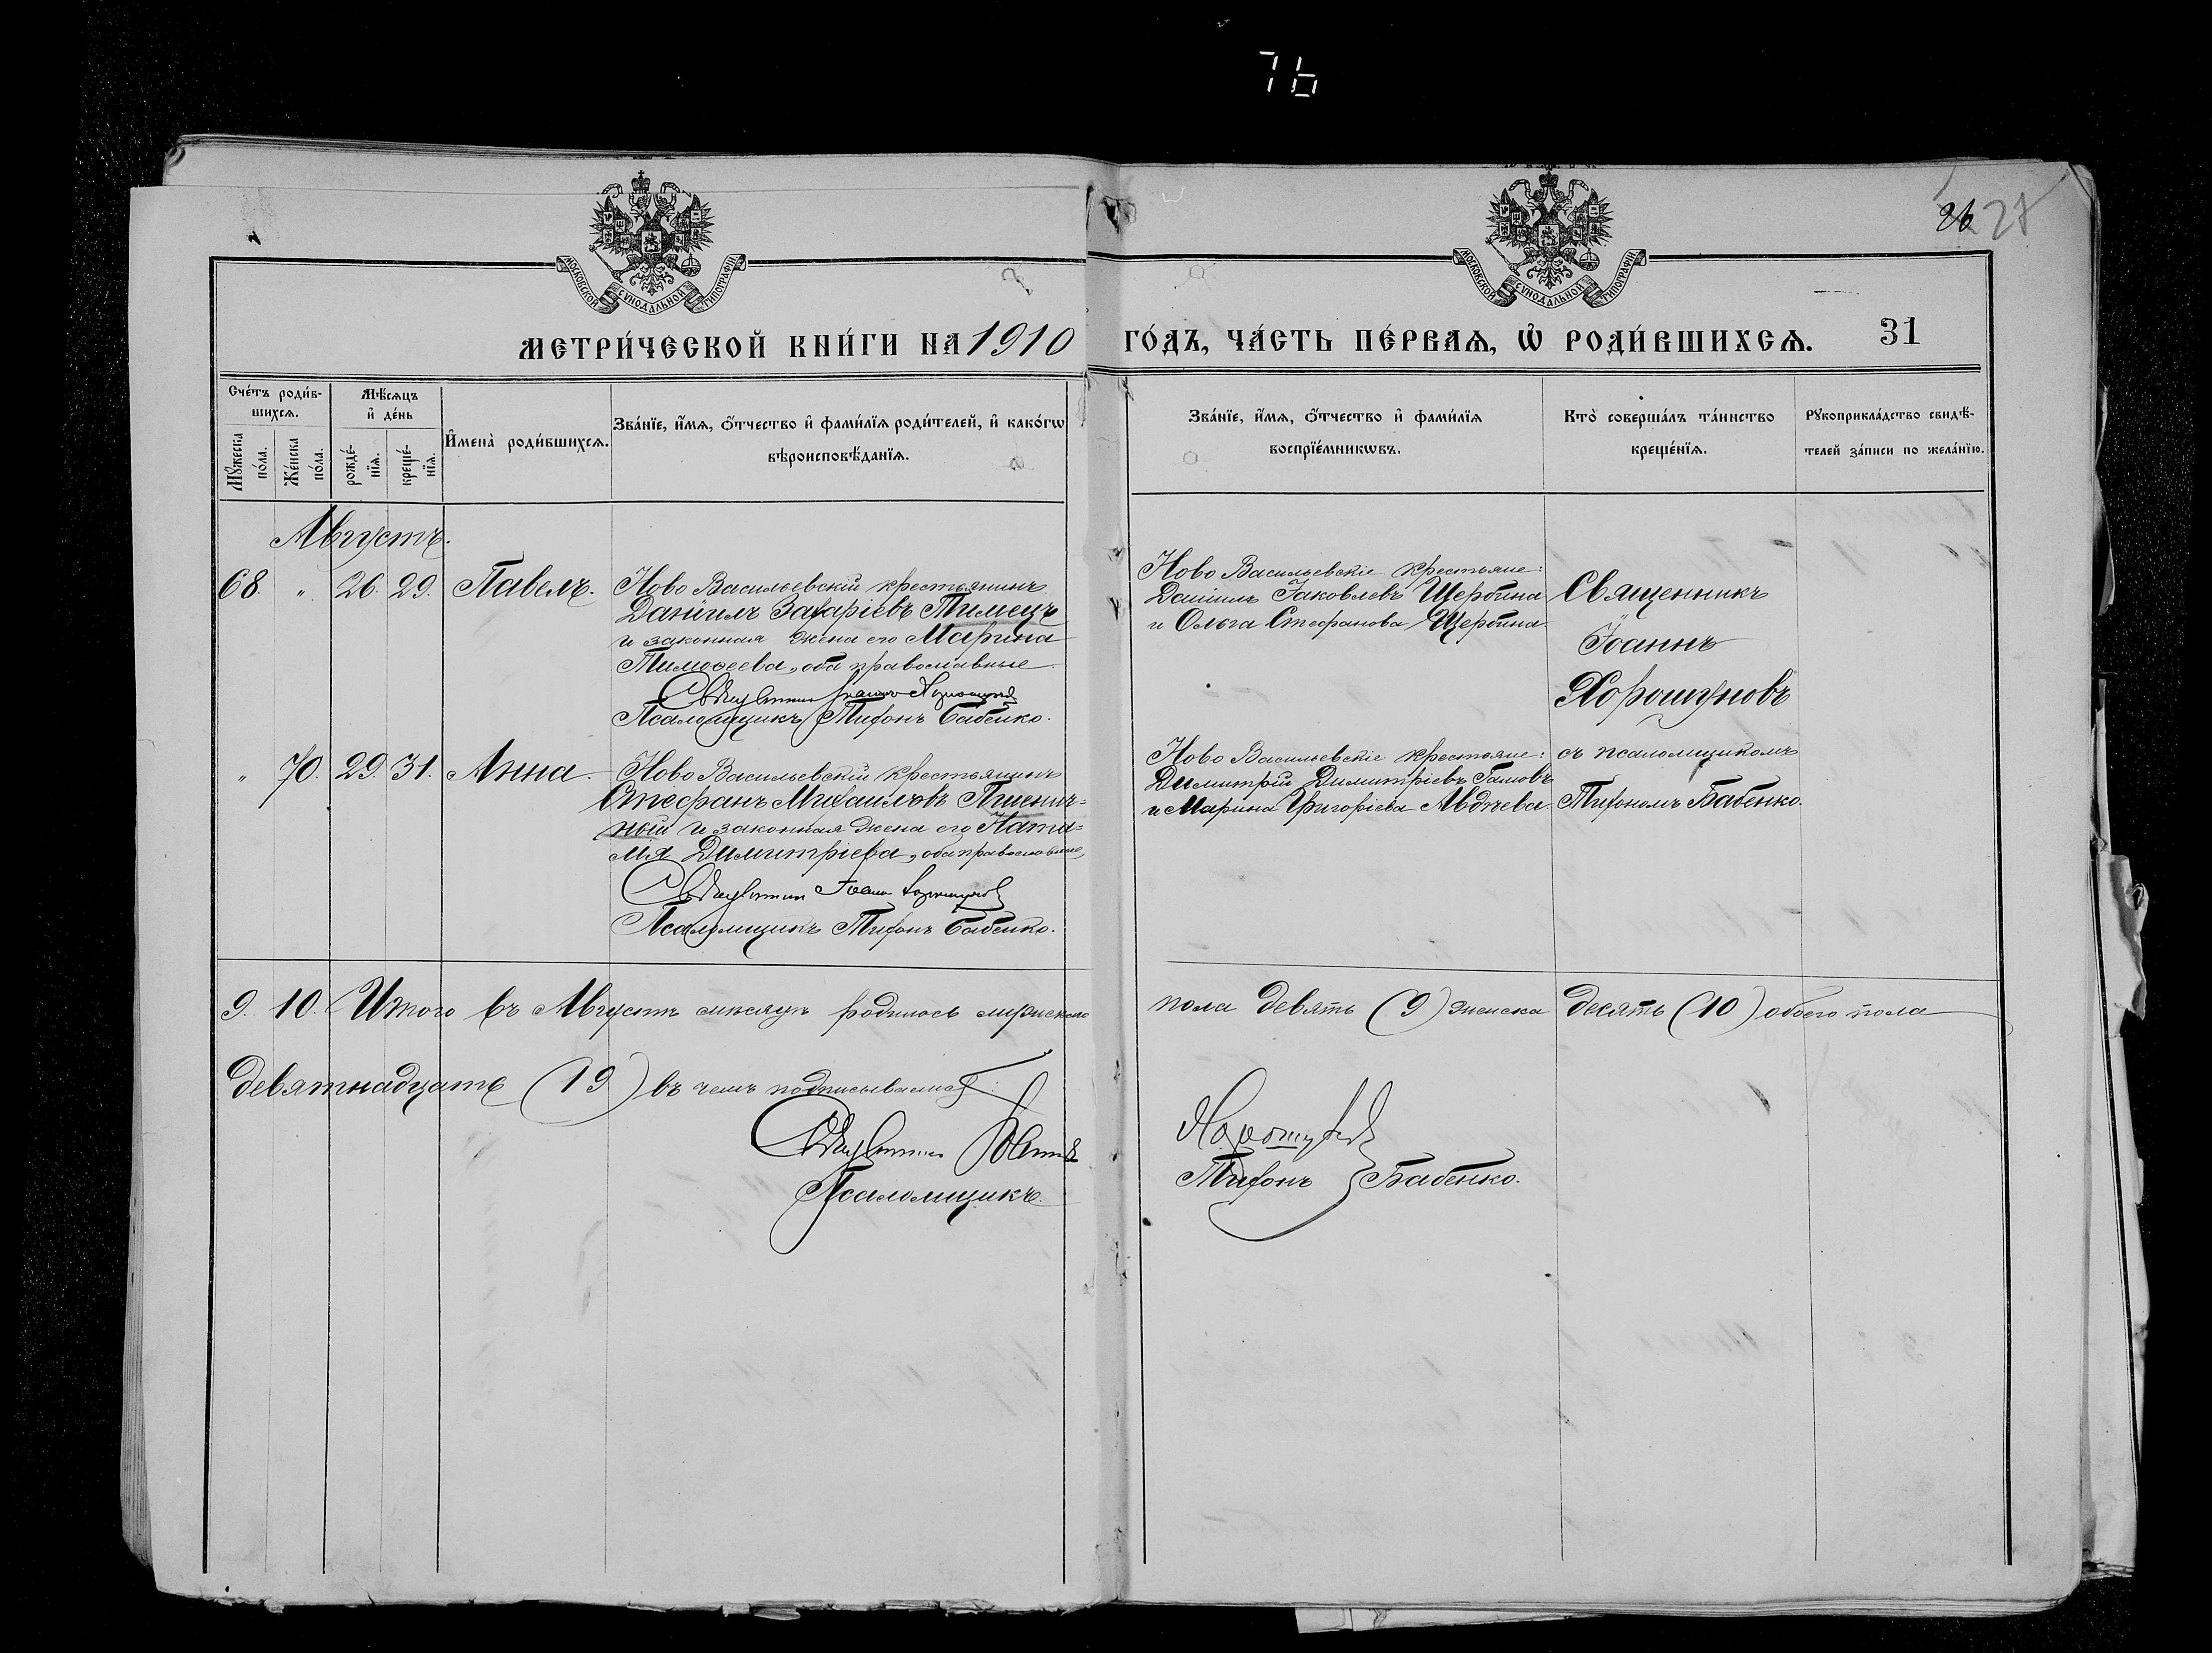 76
26 28
МОСКОВСКОЙ СѴНОДАЛЬНОЙ ТИПОГРАФІИ
МОСКОВСКОЙ СѴНОДАЛЬНОЙ ТИПОГРАФІИ
МЕТРИ́ЧЕСКОЙ КНИ́ГИ НА 1910 ГО́ДЪ, ЧА́СТЬ ПЕ́РВАѦ, Ѡ҆ РОДИ́ВШИХСѦ. 31
Сче́тъ роди́в-
шихсѧ.
Мꙋ́жеска по́ла.
Же́нска по́ла.
Мѣ́сѧцъ
и҆ де́нь
рожде́-
нїѧ.
креще́-
нїѧ.
И҆мена̀ роди́вшихсѧ.
Зва́нїе, и҆́мѧ, ѻ҆́тчество и҆ фами́лїѧ роди́телей, и҆ како́гѡ
вѣроисповѣ́данїѧ.
Зва́нїе, и҆́мѧ, ѻ҆́тчество и҆ фами́лїѧ
воспрїе́мникѡвъ.
Кто̀ соверша́лъ та́инство
креще́нїѧ.
Рꙋкоприкла́дство свидѣ́-
телей за́писи по жела́нїю.
Августъ.
68. " 26. 29. Павелъ.
Ново Васильевскій крестьянинъ
Даніилъ Захаріевъ Тимецъ
и законная жена его Марина
Тимоѳеева, оба православные
Священникъ Іоаннъ Хорошуновъ
Псаломщикъ Тихонъ Бабенко.
Ново Васильевскіе крестьяне:
Даніилъ Іаковлевъ Щербина
и Ольга Стефанова Щербина.
Священникъ
Іоаннъ
Хорошуновъ
" 70. 29. 31. Анна.
Ново Васильевскій крестьянинъ
Стефанъ Михаиловъ Пшенич=
ный и законная жена его Ната=
лія Димитріева, оба православные,
Священникъ Іоаннъ Хорошуновъ
Псаломщикъ Тихонъ Бабенко.
Ново Васильевскіе крестьяне:
Димитрій Димитріевъ Гамовъ
и Марина Григоріева Авдѣева.
съ псаломщикомъ
Тихономъ Бабенко.
9. 10. Итого въ Августѣ мѣсяцѣ родилось мужеска пола девять (9) женска десять (10) обоего пола
девятнадцать (19) въ чемъ подписываемся:
Священникъ Іоаннъ Хорошуновъ
Псаломщикъ Тихонъ Бабенко.